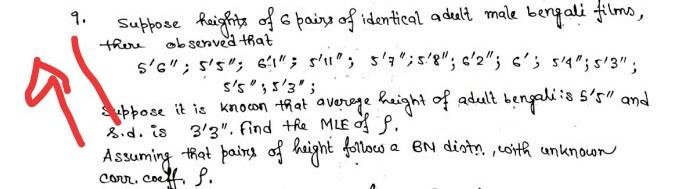 9. Suppose heights of 6 pairs of identical adult male bengali films,
there observed that
5'6"; 5'5"; 6'1"; 5'11"; 5'7"; 5'8"; 6'2"; 6'; 5'4"; 5'3";
5'5"; 5'3";
Suppose it is known that average height of adult bengali is 5'5" and
s.d. is 3'3". Find the MLE of ρ.
Assuming that pairs of height follow a BN distn., with unknown
corr. coeff. ρ.